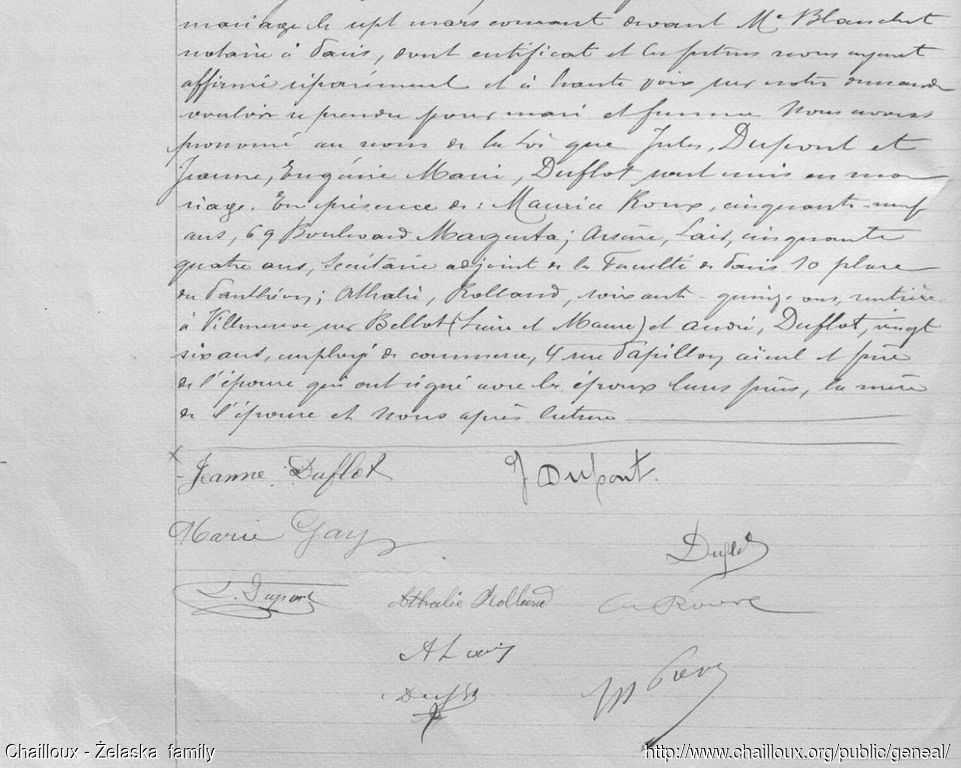 mariage le sept mars courant devant Me Blanchet
notaire à Paris, dont certificat et les futurs nous ayant
affirmé séparément et à haute voix sur notre demande
vouloir se prendre pour mari et femme Nous avons
prononcé au nom de la Loi que Jules, Dupont et
Jeanne, Eugénie Marie, Duflot sont unis en ma
riage. En présence de : Maurice Roux, cinquante-neuf
ans, 69 Boulevard Magenta; Arsène, cinquante
quatre ans, Secrétaire adjoint de la Faculté de Paris 10 place
du Panthéon; Athalie, Rolland, soixante-quinze ans, rentière
à Villeneuve sur Bellot (Seine et Marne) et André, Duflot, vingt
six ans, employé de commerce, 4 rue Papillon aïeul et frère
de l'épouse qui ont signé avec les époux leurs pères, la mère
de l'épouse et Nous après lecture
x
Jeanne Duflot J Dupont.
Marie Gay
Duflot
L. Dupont Athalie Rolland
Duflot
Chailloux - Želaska family http://www.chailloux.org/public/geneal/